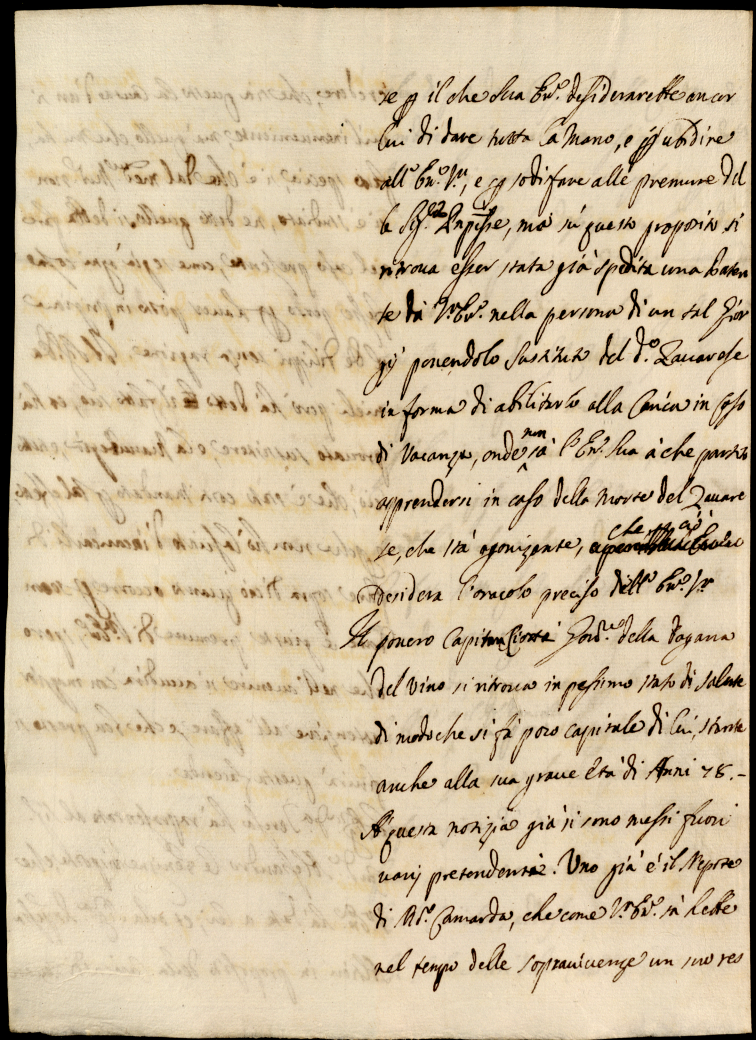 se p il che Sua Em.ᵃ desiderarebbe ancor
lui di dare tutta la Mano, e p ubidire
all' Em.ᵃ V.ᵃ, e p sodisfare alle premure del
la Sig.ʳᵃ, ma sù questo proposito si
ritrova esser stata già spedita una Paten
te da V.ᵃ Em.ᵃ nella persona di un tal Gior
gij ponendolo Sustituto del d.º Zavarese
in forma di abilitarlo alla Carica in Caso
di Vacanza, onde non sà l'Em.ᵃ Sua à che partito
apprendersi in caso della Morte del Zavare
se, che stà agonizante, che p ciò
Desidera l'oracolo preciso dell' Em.ᵃ V.ᵃ
Il povero Capitan Della Dogana
del Vino si ritrova in pessimo stato di salute
di modo che si fà poco capitale di lui, stante
anche alla sua grave Età di Anni 78.-
A' questa notizia già si sono messi fuori
varij pretendenti. Uno già è il Nepote
di M.ʳ Camarda, che come V.ᵃ Em.ᵃ sà hebbe
nel tempo delle sopravivenze un suo res